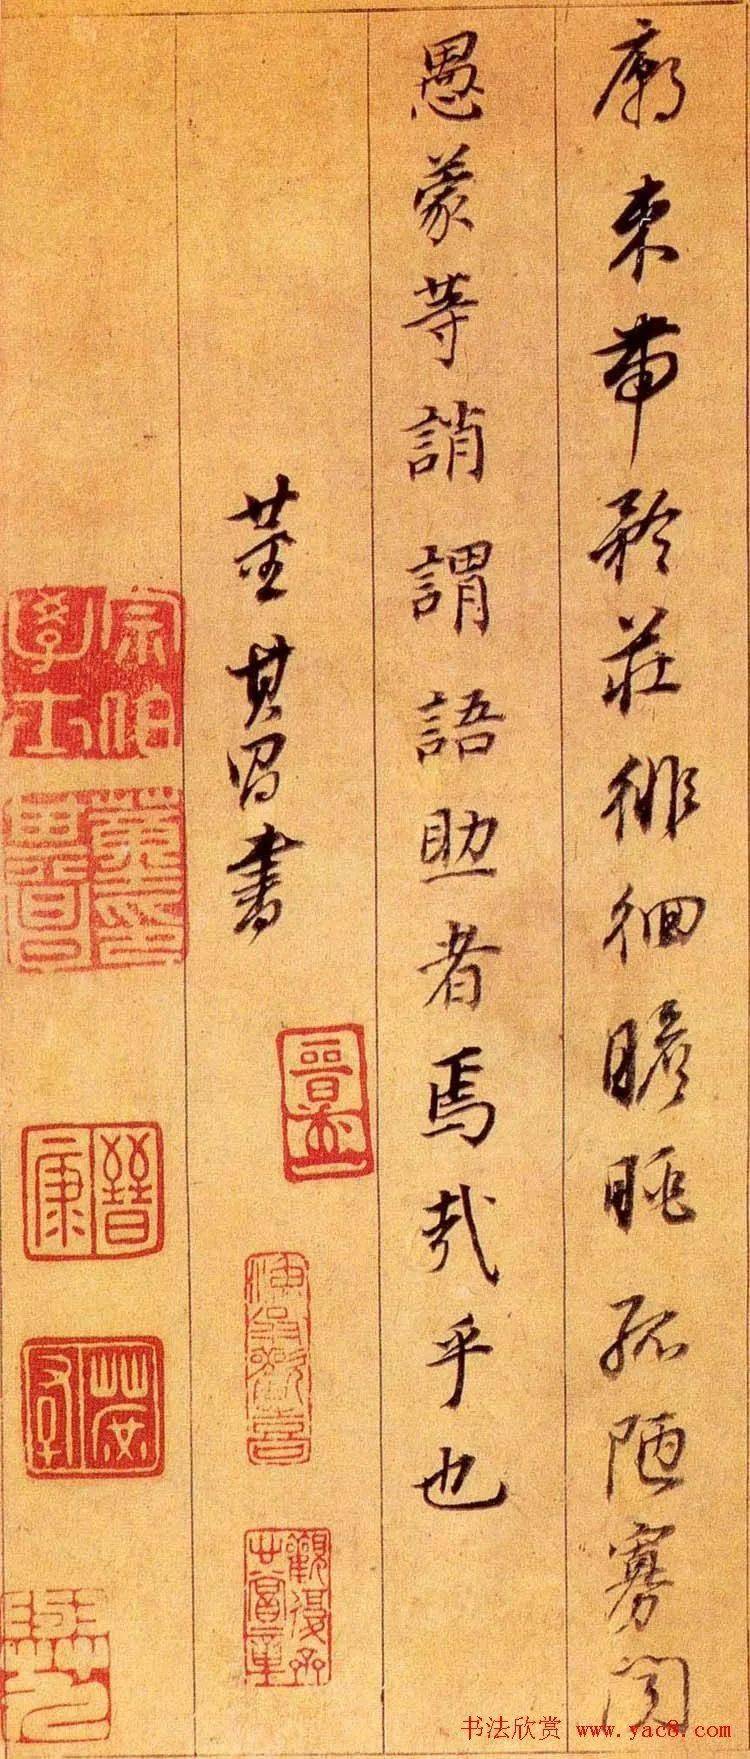 廟束帶矜莊徘徊瞻眺孤陋寡聞
愚蒙等誚謂語助者焉哉乎也
董其昌書
宗伯學士
书法欣赏 www.yac8.com